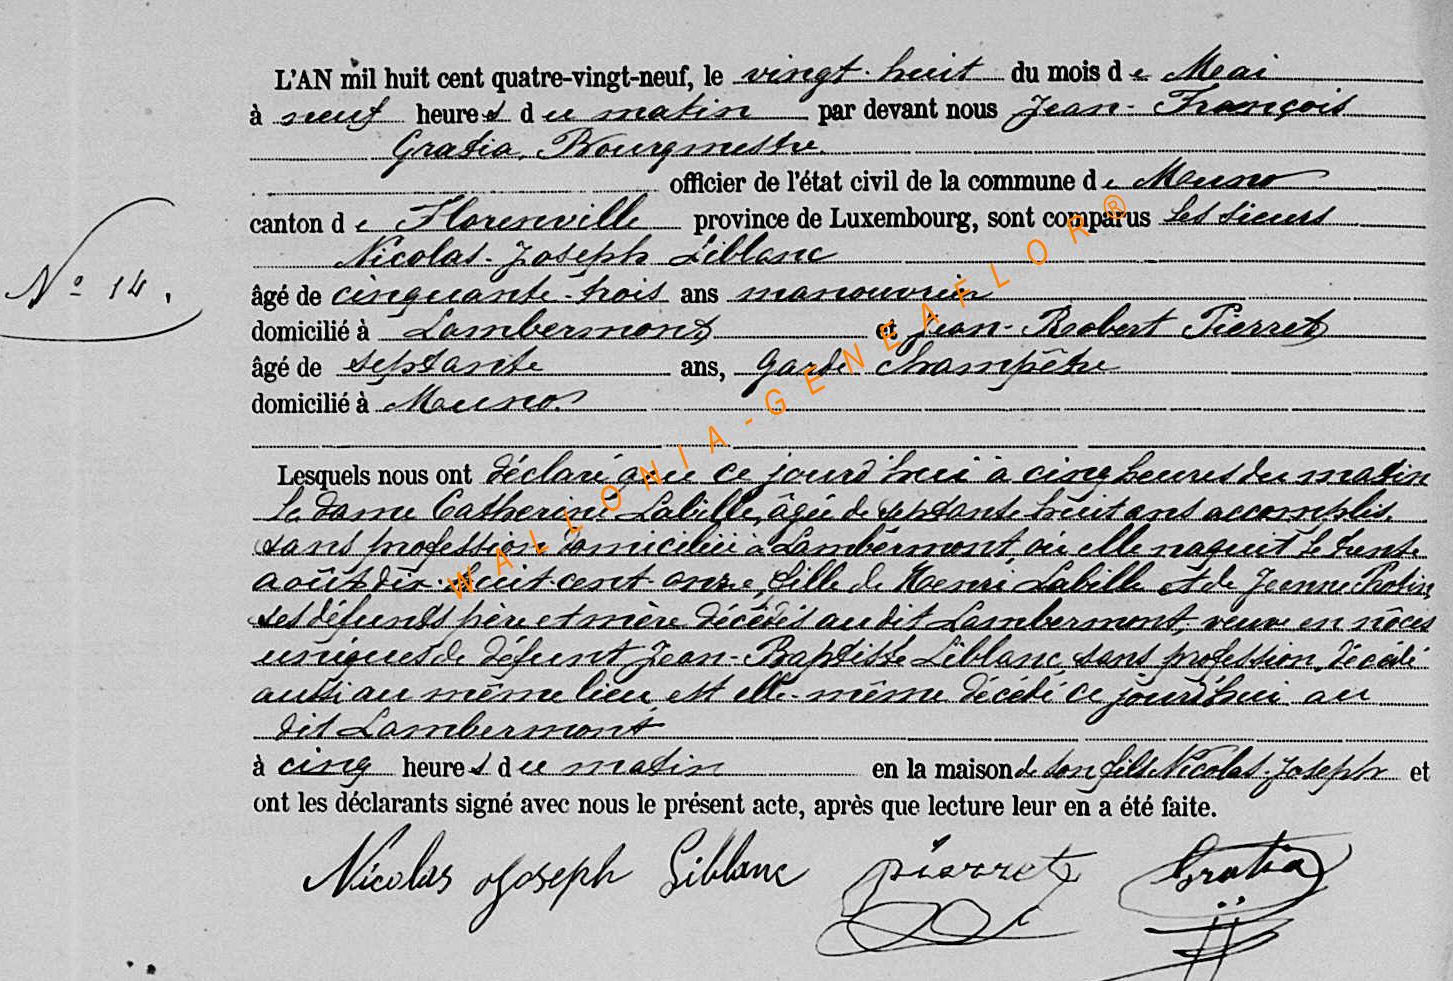 L'AN mil huit cent quatre-vingt-neuf, le vingt-huit du mois de Mai
à neuf heures du matin par devant nous Jean-François
Gratia, Bourgmestre
officier de l'état civil de la commune de Muno
canton de Florenville province de Luxembourg, sont comparus Les sieurs
Nicolas-Joseph Liblanc
N° 14.
âgé de cinquante-trois ans manouvrier
domicilié à Lambermont et Jean-Robert Pierret
âgé de septante ans, Garde Champêtre
domicilié à Muno.
Lesquels nous ont déclaré que ce jourd'hui à cinq heures du matin
la dame Catherine Labille, âgée de septante huit ans accomplis,
sans profession domiciliée à Lambermont où elle naquit le trente
août dix-huit-cent-onze, fille de Henri Labille et de Jeanne
ses défunts père et mère décédés au dit Lambermont, veuve en nôces
uniques de défunt Jean-Baptiste Liblanc sans profession, décédé
aussi au même lieu est elle-même décédé ce jourd'hui au
dit Lambermont
à cinq heures du matin en la maison de son fils Nicolas-Joseph et
ont les déclarants signé avec nous le présent acte, après que lecture leur en a été faite.
Nicolas Joseph Liblanc Pierret Gratia
WALLONIA-GENEAFLOR®